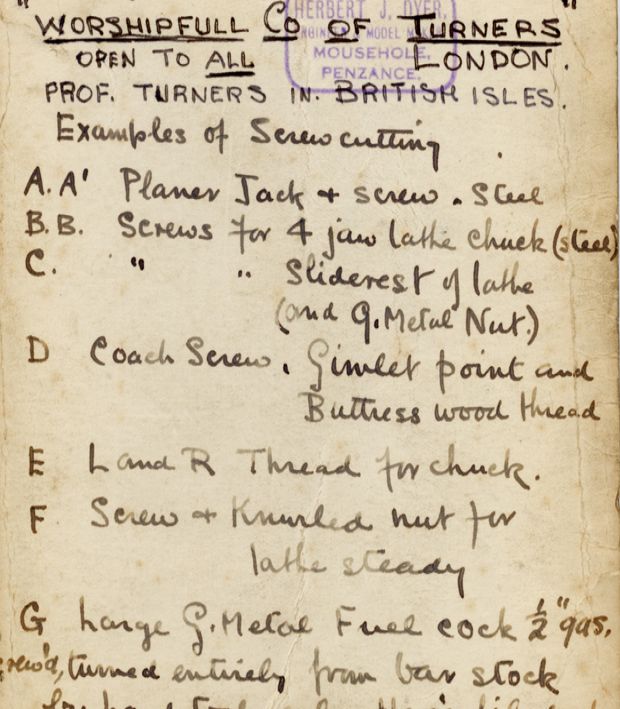 "WORSHIPFULL Co OF TURNERS"
OPEN TO ALL LONDON.
HERBERT J. DYER,
MODEL
MOUSEHOLE,
PENZANCE.
PROF. TURNERS IN. BRITISH ISLES.
Examples of Screwcutting
A. A' Planer Jack + screw. Steel
B. B. Screws for 4 jaw lathe chuck (steel)
C. " " Sliderest of lathe
(and G. Metal Nut.)
D Coach Screw. Gimlet point and
Buttress wood thread
E L and R Thread for chuck.
F Screw + Knurled nut for
lathe steady
G Large G. Metal Fuel cock ½" gas.
screw'd, turned entirely from bar stock